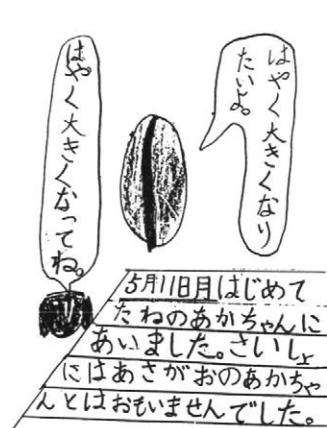 はやく大きくなり
たいよ。
はやく大きくなってね。
5月11日月はじめて
たねのあかちゃんに
あいました。さいしょ
にはあさがおのあかちゃ
んとはおもいませんでした。